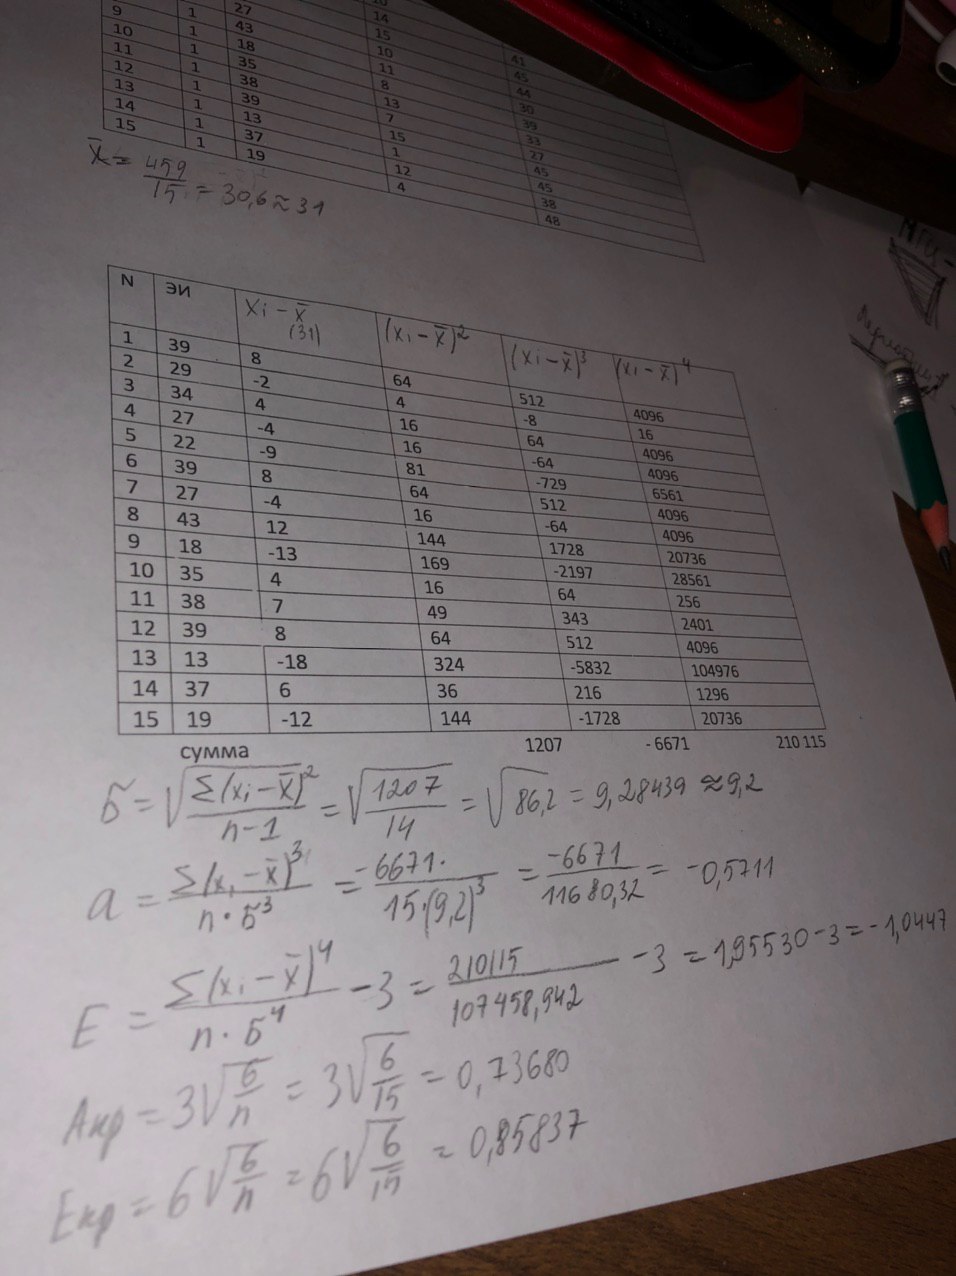 9 1 27 14 41
10 1 43 15 45
11 1 18 10 44
12 1 35 11 30
13 1 38 8 39
14 1 39 13 33
15 1 13 7 27
1 37 15 45
19 1 45
12 38
4 48
x̄ = 459/15 = 30,6 ≈ 31
N ЭИ xi - x̄ (31) (xi - x̄)² (xi - x̄)³ (xi - x̄)⁴
1 39 8 64 512 4096
2 29 -2 4 -8 16
3 34 4 16 64 4096
4 27 -4 16 -64 4096
5 22 -9 81 -729 6561
6 39 8 64 512 4096
7 27 -4 16 -64 4096
8 43 12 144 1728 20736
9 18 -13 169 -2197 28561
10 35 4 16 64 256
11 38 7 49 343 2401
12 39 8 64 512 4096
13 13 -18 324 -5832 104976
14 37 6 36 216 1296
15 19 -12 144 -1728 20736
сумма 1207 - 6671 210 115
б = √(Σ(xi - x̄)²/(n-1)) = √(1207/14) = √86,2 = 9,28439 ≈ 9,2
a = Σ(xi - x̄)³/(n · б³) = -6671/(15·(9,2)³) = -6671/11680,32 = -0,5711
E = Σ(xi - x̄)⁴/(n · б⁴) - 3 = 210115/107458,942 - 3 = 1,95530 - 3 = -1,0447
Aкр = 3√(6/n) = 3√(6/15) = 0,73680
Eкр = 6√(6/n) = 6√(6/15) = 0,85837